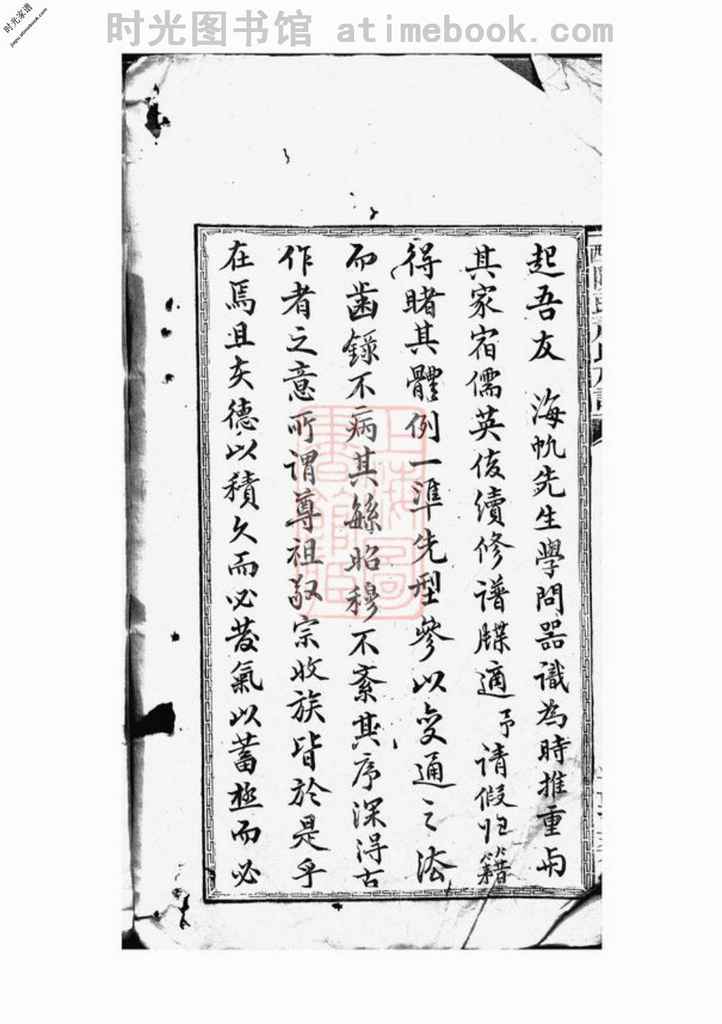 时光图书馆 atimebook.com
时光家谱
jiapu.atimebook.com
起吾友 海帆先生學問器識為時推重与
其家宿儒英俊續修谱牒適予请假归籍
得睹其體例一準先型參以变通之法
而齒錄不病其繇昭穆不紊其序深得古
作者之意所谓尊祖敬宗收族皆於是乎
在焉且夫德以積久而必发氣以蓄極而必